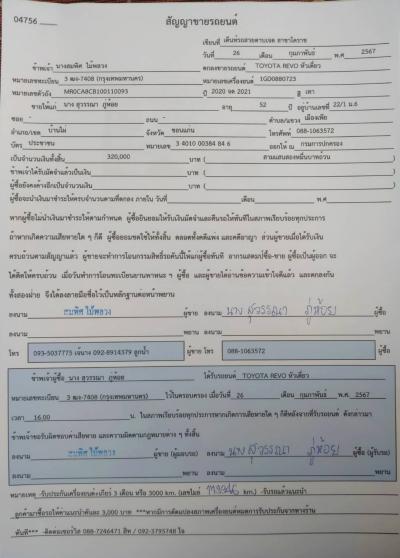 04756
สัญญาขายรถยนต์
เขียนที่ เต็นท์รถสวยตาบเจต สาขาโคราช
วันที่ 26 เดือน กุมภาพันธ์ พ.ศ 2567
ข้าพเจ้า นางสมพิศ ไม้พลวง ตกลงขายรถยนต์ TOYOTA REVO หัวเดี่ยว
หมายเลขทะเบียน 3 ฒง-7408 (กรุงเทพมหานคร) หมายเลขเครื่องยนต์ 1GD0880723
หมายเลขตัวถัง MR0CA8CB100110093 ปี 2020 จด 2021 สี เทา
ขายให้แก่ นาง สุวรรณา ภู่ห้อย อายุ 52 ปี อยู่บ้านเลขที่ 22/1 ม.6
ซอย - ถนน - ตำบล/แขวง เมืองเพีย
อำเภอ/เขต บ้านไผ่ จังหวัด ขอนแก่น โทรศัพท์ 088-1063572
บัตร ประชาชน หมายเลข 3 4010 00384 84 6 ออกให้ ณ กรมการปกครอง
เป็นจำนวนเงินทั้งสิ้น 320,000 บาท ( สามแสนสองหมื่นบาทถ้วน )
ข้าพเจ้าได้รับมัดจำแล้วเป็นเงิน - บาท ( - )
ผู้ซื้อยังคงค้างอีกเป็นจำนวนเงิน - บาท ( - )
ผู้ซื้อจะนำเงินมาชำระให้ครบจำนวนตามที่ตกลง ภายใน วันที่ - เดือน - พ.ศ. -
หากผู้ซื้อไม่นำเงินมาชำระให้ตามกำหนด ผู้ซื้อยินยอมให้รับเงินมัดจำและคืนรถให้ทันทีในสภาพเรียบร้อยทุกประการ
ถ้าหากเกิดความเสียหายใด ๆ ก็ดี ผู้ซื้อยอมชดใช้ให้ทั้งสิ้น ตลอดทั้งคดีแพ่ง และคดีอาญา ส่วนผู้ขายเมื่อได้รับเงิน
ครบถ้วนตามสัญญาแล้ว ผู้ขายจะทำการโอนกรรมสิทธิ์รถคันนี้ให้แก่ผู้ซื้อทันที อากรแสตมป์ซื้อ-ขาย ผู้ซื้อเป็นผู้ออก จะ
ได้ติดให้ครบถ้วน เมื่อวันทำการโอนทะเบียนยานพาหนะ ฯ ผู้ซื้อ และผู้ขายได้อ่านข้อความเข้าใจดีแล้ว และตกลงกัน
ทั้งสองฝ่าย จึงได้ลงลายมือชื่อไว้เป็นหลักฐานต่อหน้าพยาน
ลงนาม สมพิศ ไม้พลวง ผู้ขาย ลงนาม นาง สุวรรณา ภู่ห้อย ผู้ซื้อ
ลงนาม พยาน ลงนาม พยาน
โทร 093-5037775 เจ้นาง 092-8914379 ลูกน้ำ ผู้ขาย โทร 088-1063572 ผู้ซื้อ
ข้าพเจ้าผู้ซื้อ นาง สุวรรณา ภู่ห้อย ได้รับรถยนต์ TOYOTA REVO หัวเดี่ยว
หมายเลขทะเบียน 3 ฒง-7408 (กรุงเทพมหานคร) ไว้ในครอบครอง เมื่อวันที่ 26 เดือน กุมภาพันธ์ พ.ศ. 2567
เวลา 16.00 น. ในสภาพเรียบร้อยทุกประการหากเกิดการเสียหายใด ๆ ก็ดีหลังจากที่รับรถยนต์ ดังกล่าวมา
ข้าพเจ้าขอรับผิดชอบค่าเสียหาย และความผิดตามกฎหมายต่าง ๆ ทั้งสิ้น
ลงนาม สมพิศ ไม้พลวง ผู้ขาย (ผู้มอบรถ) ลงนาม นาง สุวรรณา ภู่ห้อย ผู้ซื้อ (ผู้รับรถ)
ลงนาม พยาน ลงนาม พยาน
หมายเหตุ -รับประกันเครื่องยนต์+เกียร์ 3 เดือน หรือ 3000 km. (เลขไมล์ km.) -รับรถแล้วแนะนำ
ลูกค้ามาซื้อรถให้ค่าแนะนำคันละ 3,000 บาท ***หากมีการดัดแปลงสภาพเครื่องยนต์หมดการรับประกันจากทางร้าน
ทันที*** -ติดต่อเซอร์วิส 088-7246471 ฮิท / 092-3795748 ใจ